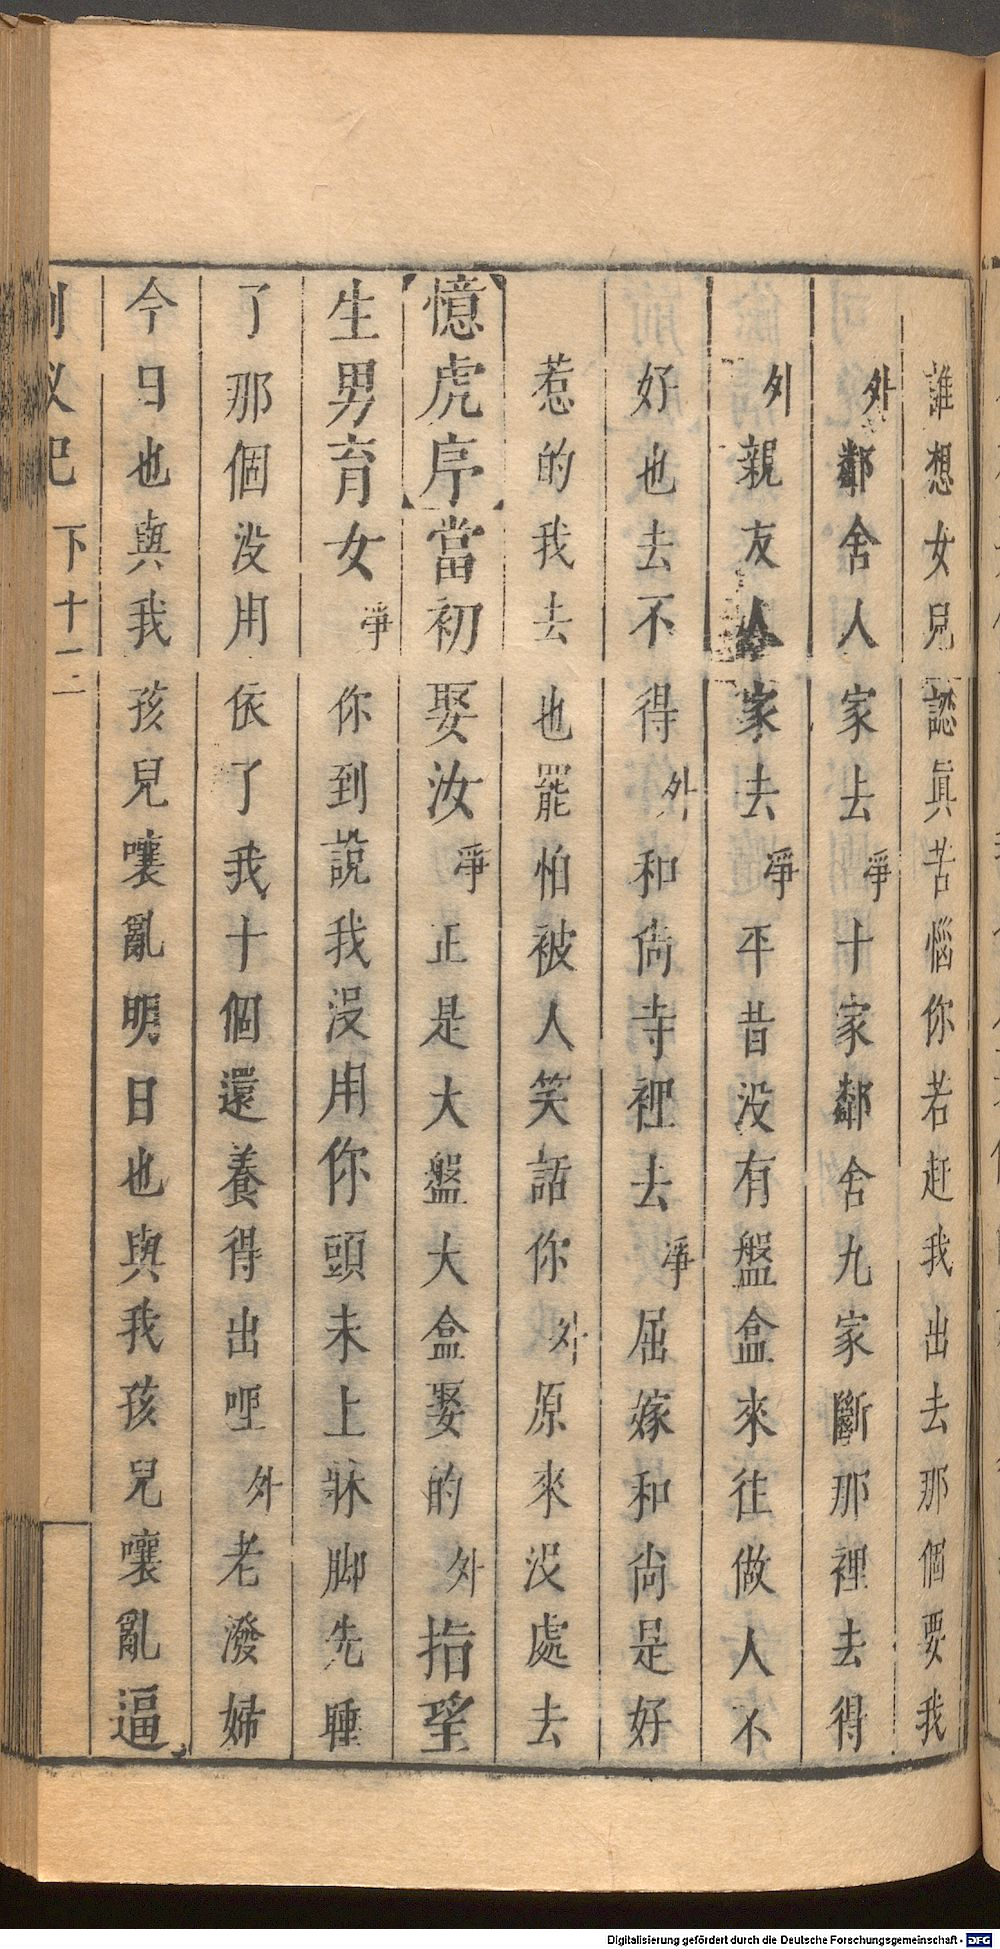 誰想女兒認眞苦惱你若赶我出去那個要我
外鄰舍人家去淨十家鄰舍九家斷那裡去得
外親友人家去淨平昔没有盤盒來往做人不
好也去不得外和尙寺裡去淨屈嫁和尙是好
惹的我去也罷怕被人笑話你外原來没處去
【憶虎序】當初娶汝淨正是大盤大盒娶的外指望
生男育女淨你到說我没用你頭未上牀脚先睡
了那個没用依了我十個還養得出哩外老潑婦
今日也與我孩兒嚷亂明日也與我孩兒嚷亂逼
下十二
Digitalisierung gefördert durch die Deutsche Forschungsgemeinschaft - DFG